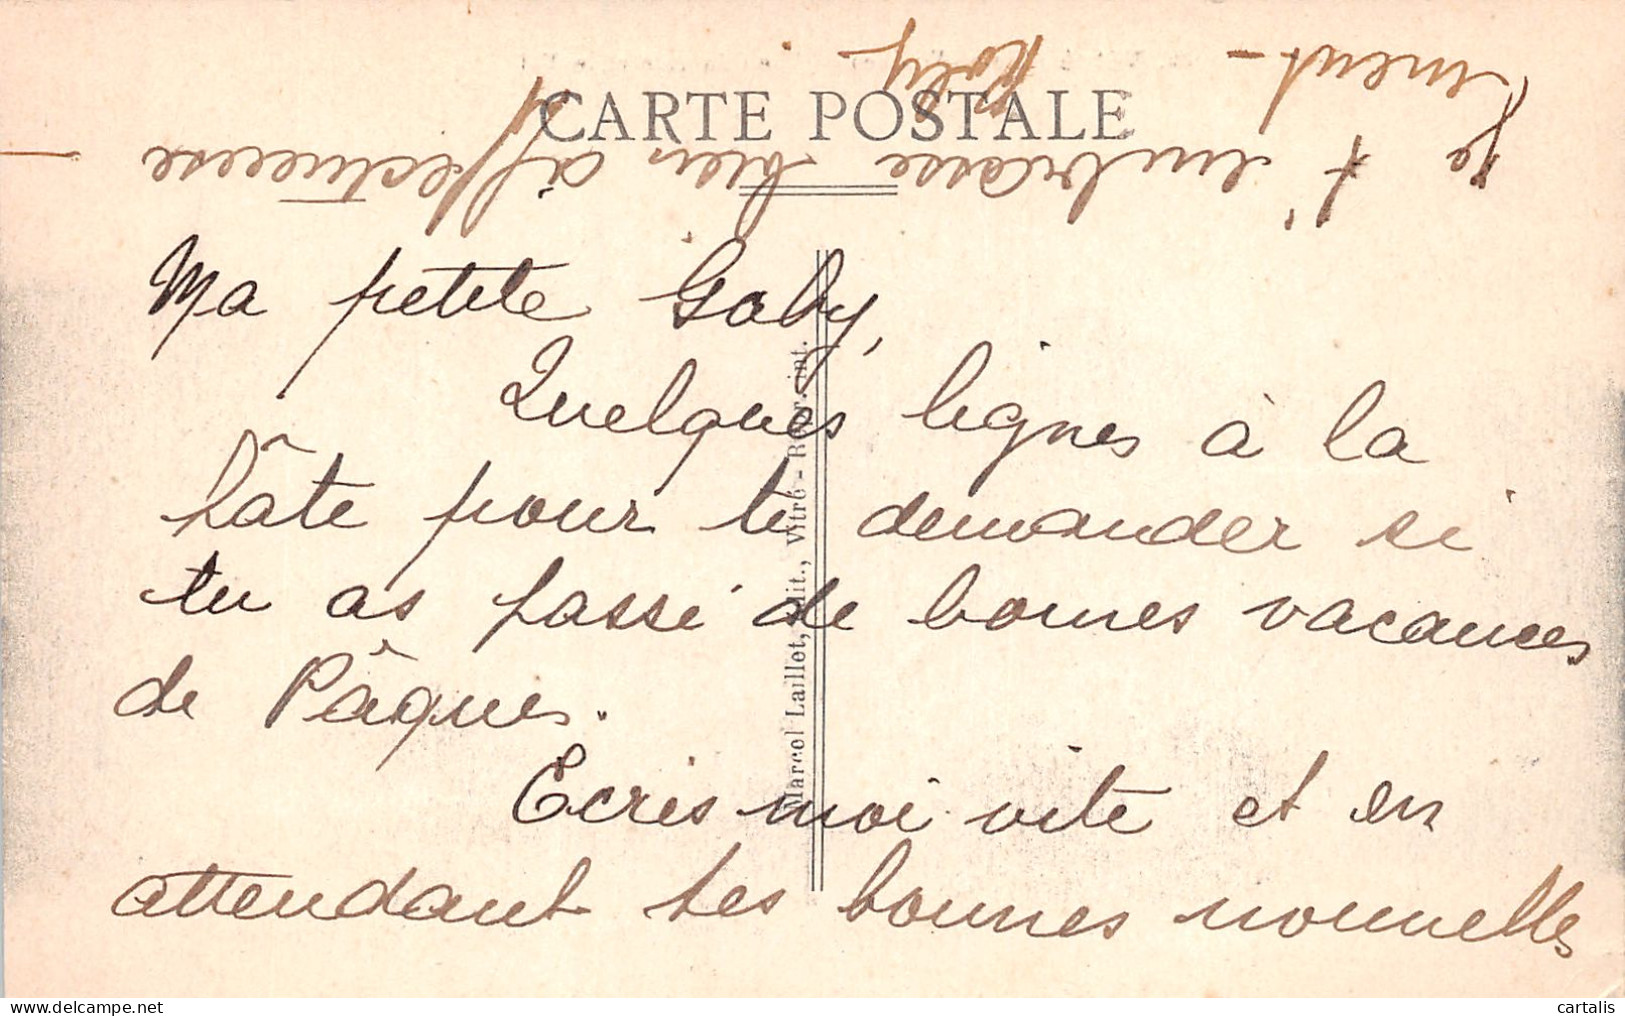 CARTE POSTALE
Ma petite Gaby,
Quelques lignes à la
hâte pour te demander si
tu as passé de bonnes vacances
de Pâques.
Ecris moi vite et en
attendant tes bonnes nouvelles
Je t'embrasse bien affectueuse
ment -
Marcel Laillet, édit., Vitré - Repr. int.
cartalis